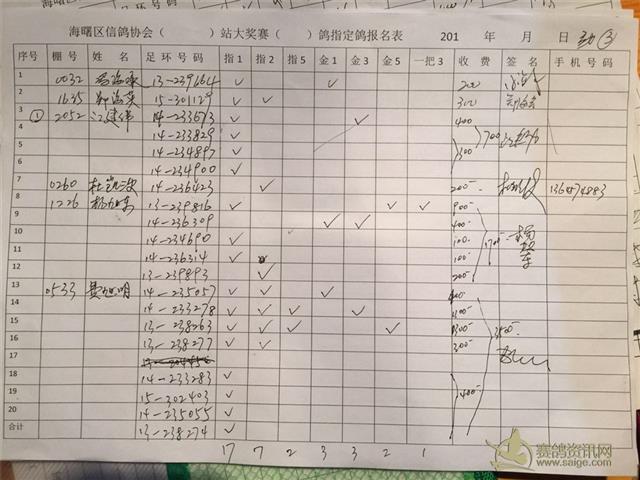 海曙区信鸽协会（　　）站大奖赛（　　）鸽指定鸽报名表　201　年　月　日　③
序号 棚号 姓名 足环号码 指1 指2 指5 金1 金3 金5 一把3 收费 签名 手机号码
1 0032 13-239664 ✓ ✓ 200
2 1635 15-301129 ✓ ✓ 300
3 ① 2052 江建伟 14-233673 ✓ ✓ 400
4 14-233829 ✓ 700
5 14-234897 ✓ 300
6 14-234900 ✓
7 0260 杜凯波 14-236423 ✓ 200-
8 1226 13-239816 ✓ ✓ ✓ 900-
9 14-236309 ✓ ✓ 400-
10 14-234690 ✓ 100- 1700-
11 14-236314 ✓ 100-
12 13-239893 ✓ 200-
13 0533 14-235057 ✓ ✓ ✓
14 14-233278 ✓ ✓ ✓ ✓
15 13-238263 ✓ ✓ ✓ ✓
16 13-238277 ✓ ✓ 300-
17
18 14-233283 ✓
19 15-302403 ✓ 400-
20 14-235055 ✓
合计 13-238274 ✓
17 7 2 3 3 2 1
赛鸽资讯网
www.saige.com